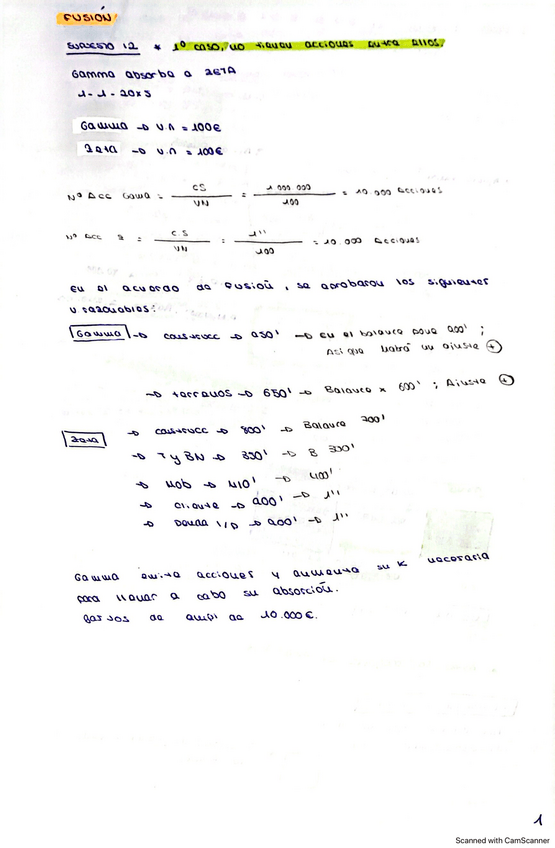 FUSIÓN
SUPUESTO 12 * 1º CASO, NO tienen acciones entre ellos.
Gamma absorbe a ZETA
1-1-20X3
Gamma → V.N = 100€
Zeta → V.N = 100€
Nº Acc Gama = CS / VN = 1 000 000 / 100 = 10 000 Acciones
Nº Acc Z = C.S / VN = 1'' / 100 = 10.000 Acciones
En el acuerdo de Fusión, se aprobaron los siguientes
v razonables:
Gamma → construcc → 250' → En el balance pone 200' ;
Así que habrá un ajuste +
→ terrenos → 650' → Balance x 600' ; Ajuste +
Zeta → construcc → 800' → Balance 700'
→ T y BN → 350' → B 330'
→ Mob → 410' → 400'
→ cliente → 200' → 1''
→ Deuda l/p → 200' → 1''
Gamma emite acciones y aumenta su K necesaria
para llevar a cabo su absorción.
Gastos de ampl de 10.000€.
1
Scanned with CamScanner